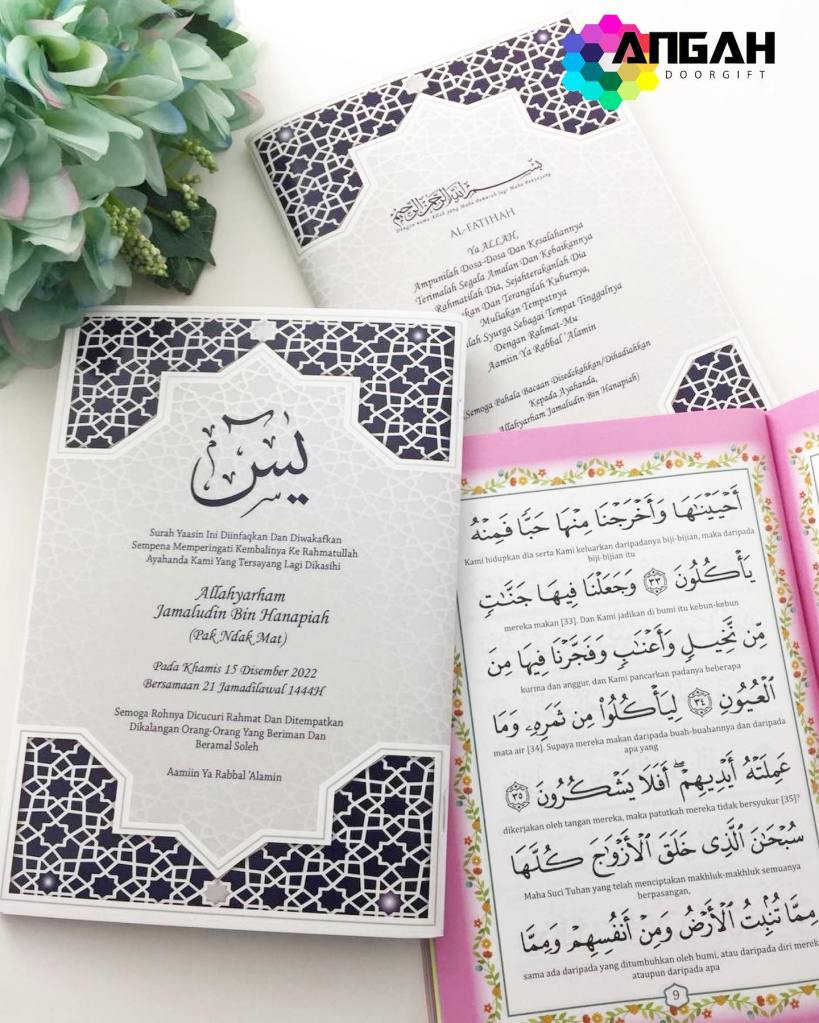 ANGAH
DOORGIFT
بسم الله الرحمن الرحيم
Dengan nama Allah yang Maha Pemurah lagi Maha Penyayang
AL-FATIHAH
Ya ALLAH,
Ampunilah Dosa-Dosa Dan Kesalahannya
Terimalah Segala Amalan Dan Kebaikannya
Rahmatilah Dia, Sejahterakanlah Dia
kan Dan Terangilah Kuburnya,
Muliakan Tempatnya
lah Syurga Sebagai Tempat Tinggalnya
Dengan Rahmat-Mu
Aamiin Ya Rabbal 'Alamin
Semoga Pahala Bacaan Disedekahkan/Dihadiahkan
Kepada Ayahanda,
Allahyarham Jamaludin Bin Hanapiah)
يس
Surah Yaasin Ini Diinfaqkan Dan Diwakafkan
Sempena Memperingati Kembalinya Ke Rahmatullah
Ayahanda Kami Yang Tersayang Lagi Dikasihi
Allahyarham
Jamaludin Bin Hanapiah
(Pak Ndak Mat)
Pada Khamis 15 Disember 2022
Bersamaan 21 Jamadilawal 1444H
Semoga Rohnya Dicucuri Rahmat Dan Ditempatkan
Dikalangan Orang-Orang Yang Beriman Dan
Beramal Soleh
Aamiin Ya Rabbal 'Alamin
أَحْيَيْنَٰهَا وَأَخْرَجْنَا مِنْهَا حَبًّا فَمِنْهُ
Kami hidupkan dia serta Kami keluarkan daripadanya biji-bijian, maka daripada
biji-bijian itu
يَأْكُلُونَ ٣٣ وَجَعَلْنَا فِيهَا جَنَّٰتٍ
mereka makan [33]. Dan Kami jadikan di bumi itu kebun-kebun
مِّن نَّخِيلٍ وَأَعْنَٰبٍ وَفَجَّرْنَا فِيهَا مِنَ
kurma dan anggur, dan Kami pancarkan padanya beberapa
ٱلْعُيُونِ ٣٤ لِيَأْكُلُوا۟ مِن ثَمَرِهِۦ وَمَا
mata air [34]. Supaya mereka makan daripada buah-buahannya dan daripada
apa yang
عَمِلَتْهُ أَيْدِيهِمْ ۖ أَفَلَا يَشْكُرُونَ ٣٥
dikerjakan oleh tangan mereka, maka patutkah mereka tidak bersyukur [35]?
سُبْحَٰنَ ٱلَّذِى خَلَقَ ٱلْأَزْوَٰجَ كُلَّهَا
Maha Suci Tuhan yang telah menciptakan makhluk-makhluk semuanya
berpasangan,
مِمَّا تُنۢبِتُ ٱلْأَرْضُ وَمِنْ أَنفُسِهِمْ وَمِمَّا
sama ada daripada yang ditumbuhkan oleh bumi, atau daripada diri mereka
ataupun daripada apa
9